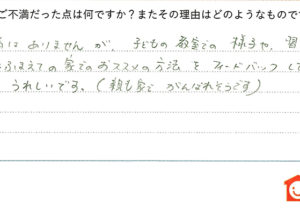 ご不満だった点は何ですか？またその理由はどのようなもので
はありませんが、子どもの教室での様子や、習
ふまえての家でのおススメの方法をフィードバックして
うれしいです。（親も家でがんばれそうです）